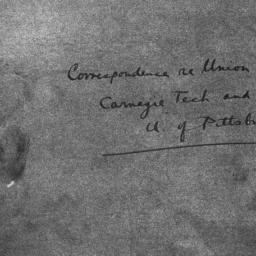 Correspondence re Union
Carnegie Tech and
U. of Pittsb